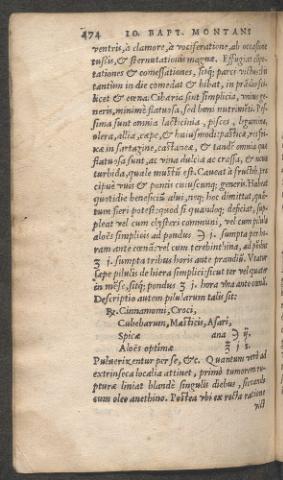 474 IO. BAPT. MONTANI
ventris, à clamore, à vociferatione, ab occasione
tussis, & sternutationis magnæ. Effugiat
tationes & comessationes, sitq́; parci
tantùm in die comedat & bibat, in prandio sci-
licet & cœna: Cibaria sint simplicia, unius ge-
neris, minimè flatuosa, sed boni nutrimẽti: Pes-
sima sunt omnia lacticinia, pisces, legumina,
olera, allia, cæpe, & huiusmodi: pasticæ,
in sartagine, castaneæ, & tandẽ omnia quæ
flatuosa sunt, ac vina dulcia ac crassa, & nova
turbida, quale mustũ est. Caveat à fructib. præ
cipuè vuis & pomis cuiuscunq; generis. Habeat
quotidie beneficiũ alui, neq; hoc dimittat, quã-
tum fieri potest: quòd si quandoq; deficiat, sup-
pleat vel cum clysteri communi, vel cum pilulis
aloës simplicis ad pondus ℈ j. sumpta per ho-
ram ante cœnã: vel cum terebinthina, ad põdus
ʒ j. sumpta tribus horis ante prandiũ. Vtatur
sæpe pilulis de hiera simplici: sicut ter vel quater
in mẽse, sitq; pondus ʒ j. hora vna ante cœnã.
Descriptio autem pilularum talis sit:
℞. Cinnamomi, Croci,
Cubebarum, Mastices, Asari,
Spicæ ana ℈ ij.
Aloës optimæ ℥ j ʒ.
Pulverizentur per se, &c. Quantum verò ad
extrinseca localia attinet, primò tumorem ru-
pturæ liniat blandè singulis diebus, siccando
cum oleo anethino. Postea vbi ex recta ratione
vict